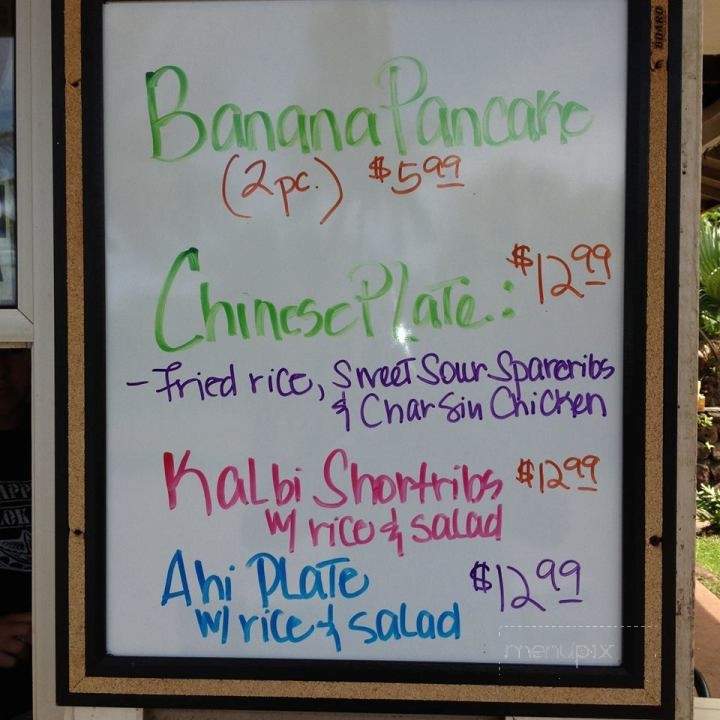 BOARD
Banana Pancake
(2pc.) $5.99
Chinese Plate: $12.99
- Fried rice, Sweet Sour Spareribs
& Char Siu Chicken
Kalbi Shortribs $12.99
w/ rice & salad
Ahi Plate $12.99
w/ rice & salad
menupix